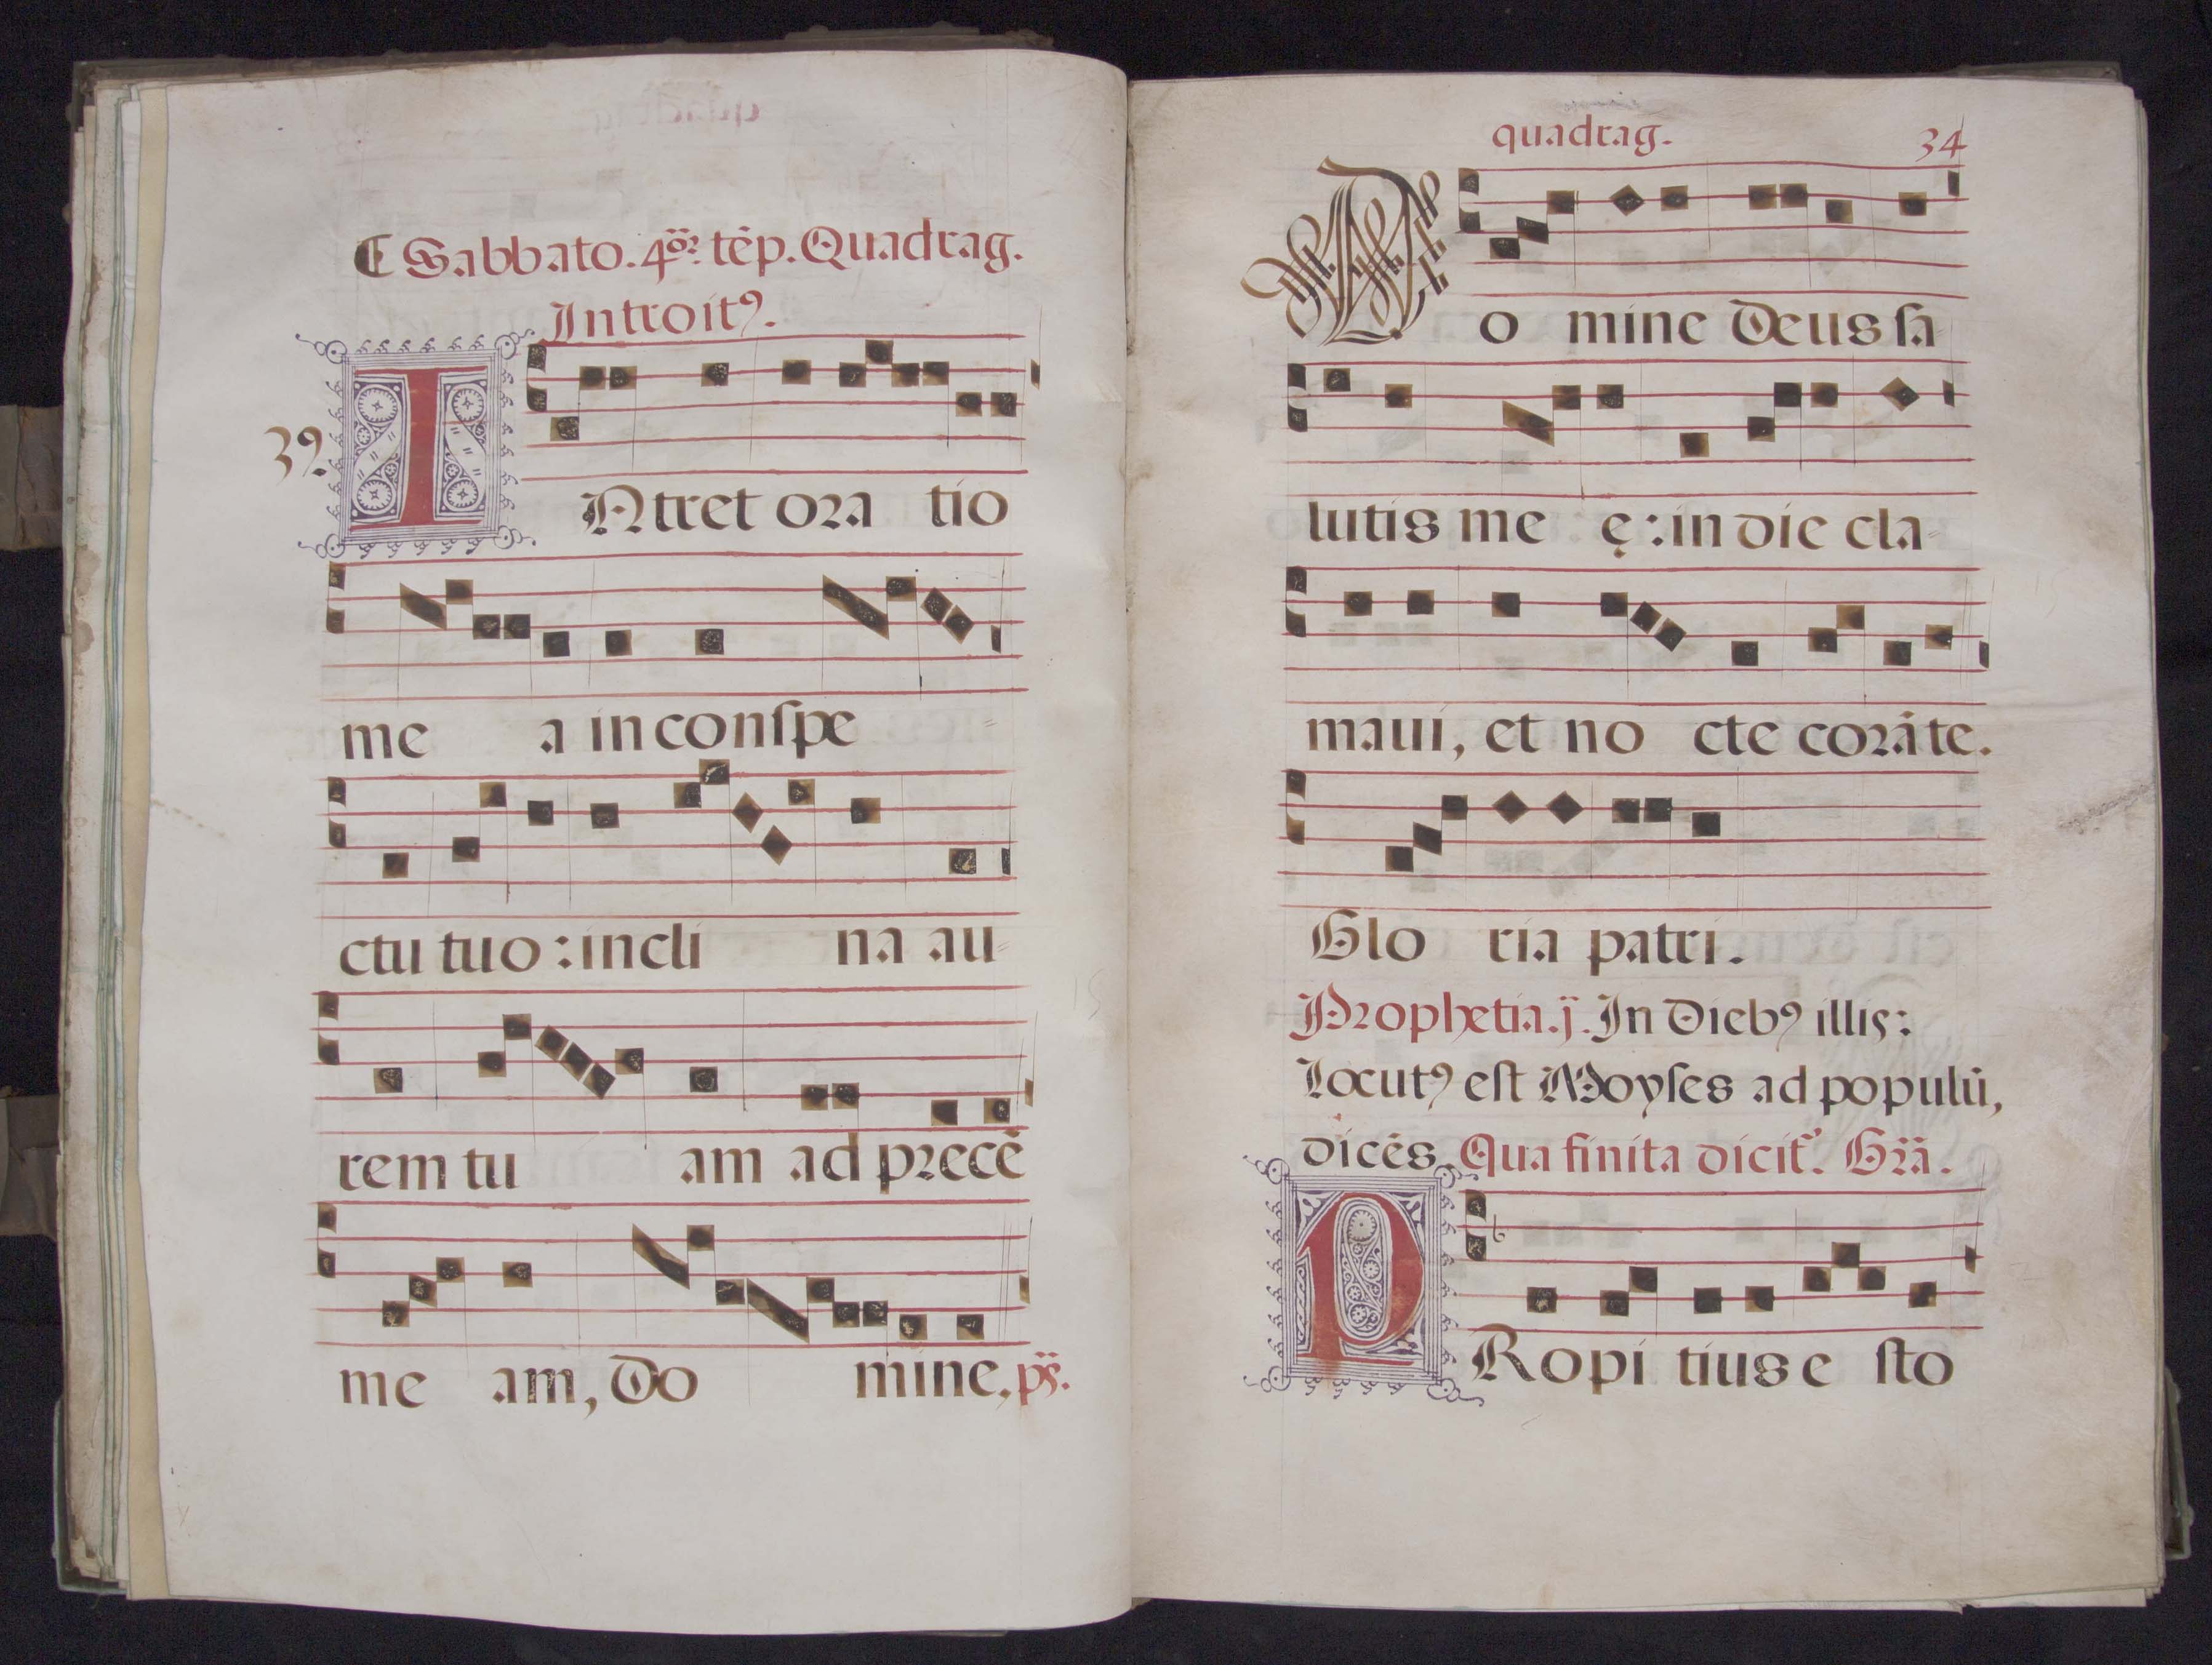 ¶ Sabbato. 4or. tēp. Quadrag.
Introitꝰ.
39.
INtret ora tio
me a in conſpe
ctu tuo : incli na au
rem tu am ad precē
me am, Do mine, ps̄.
quadrag. 34
Do mine Deus ſa
lutis me ę : in die cla
maui, et no cte corā te.
Glo ria patri.
Prophetia. ij. In diebꝰ illis:
Locutꝰ eſt Moyſes ad populū,
dicēs, Qua finita dicit̄. Grā.
PRopi tius e ſto